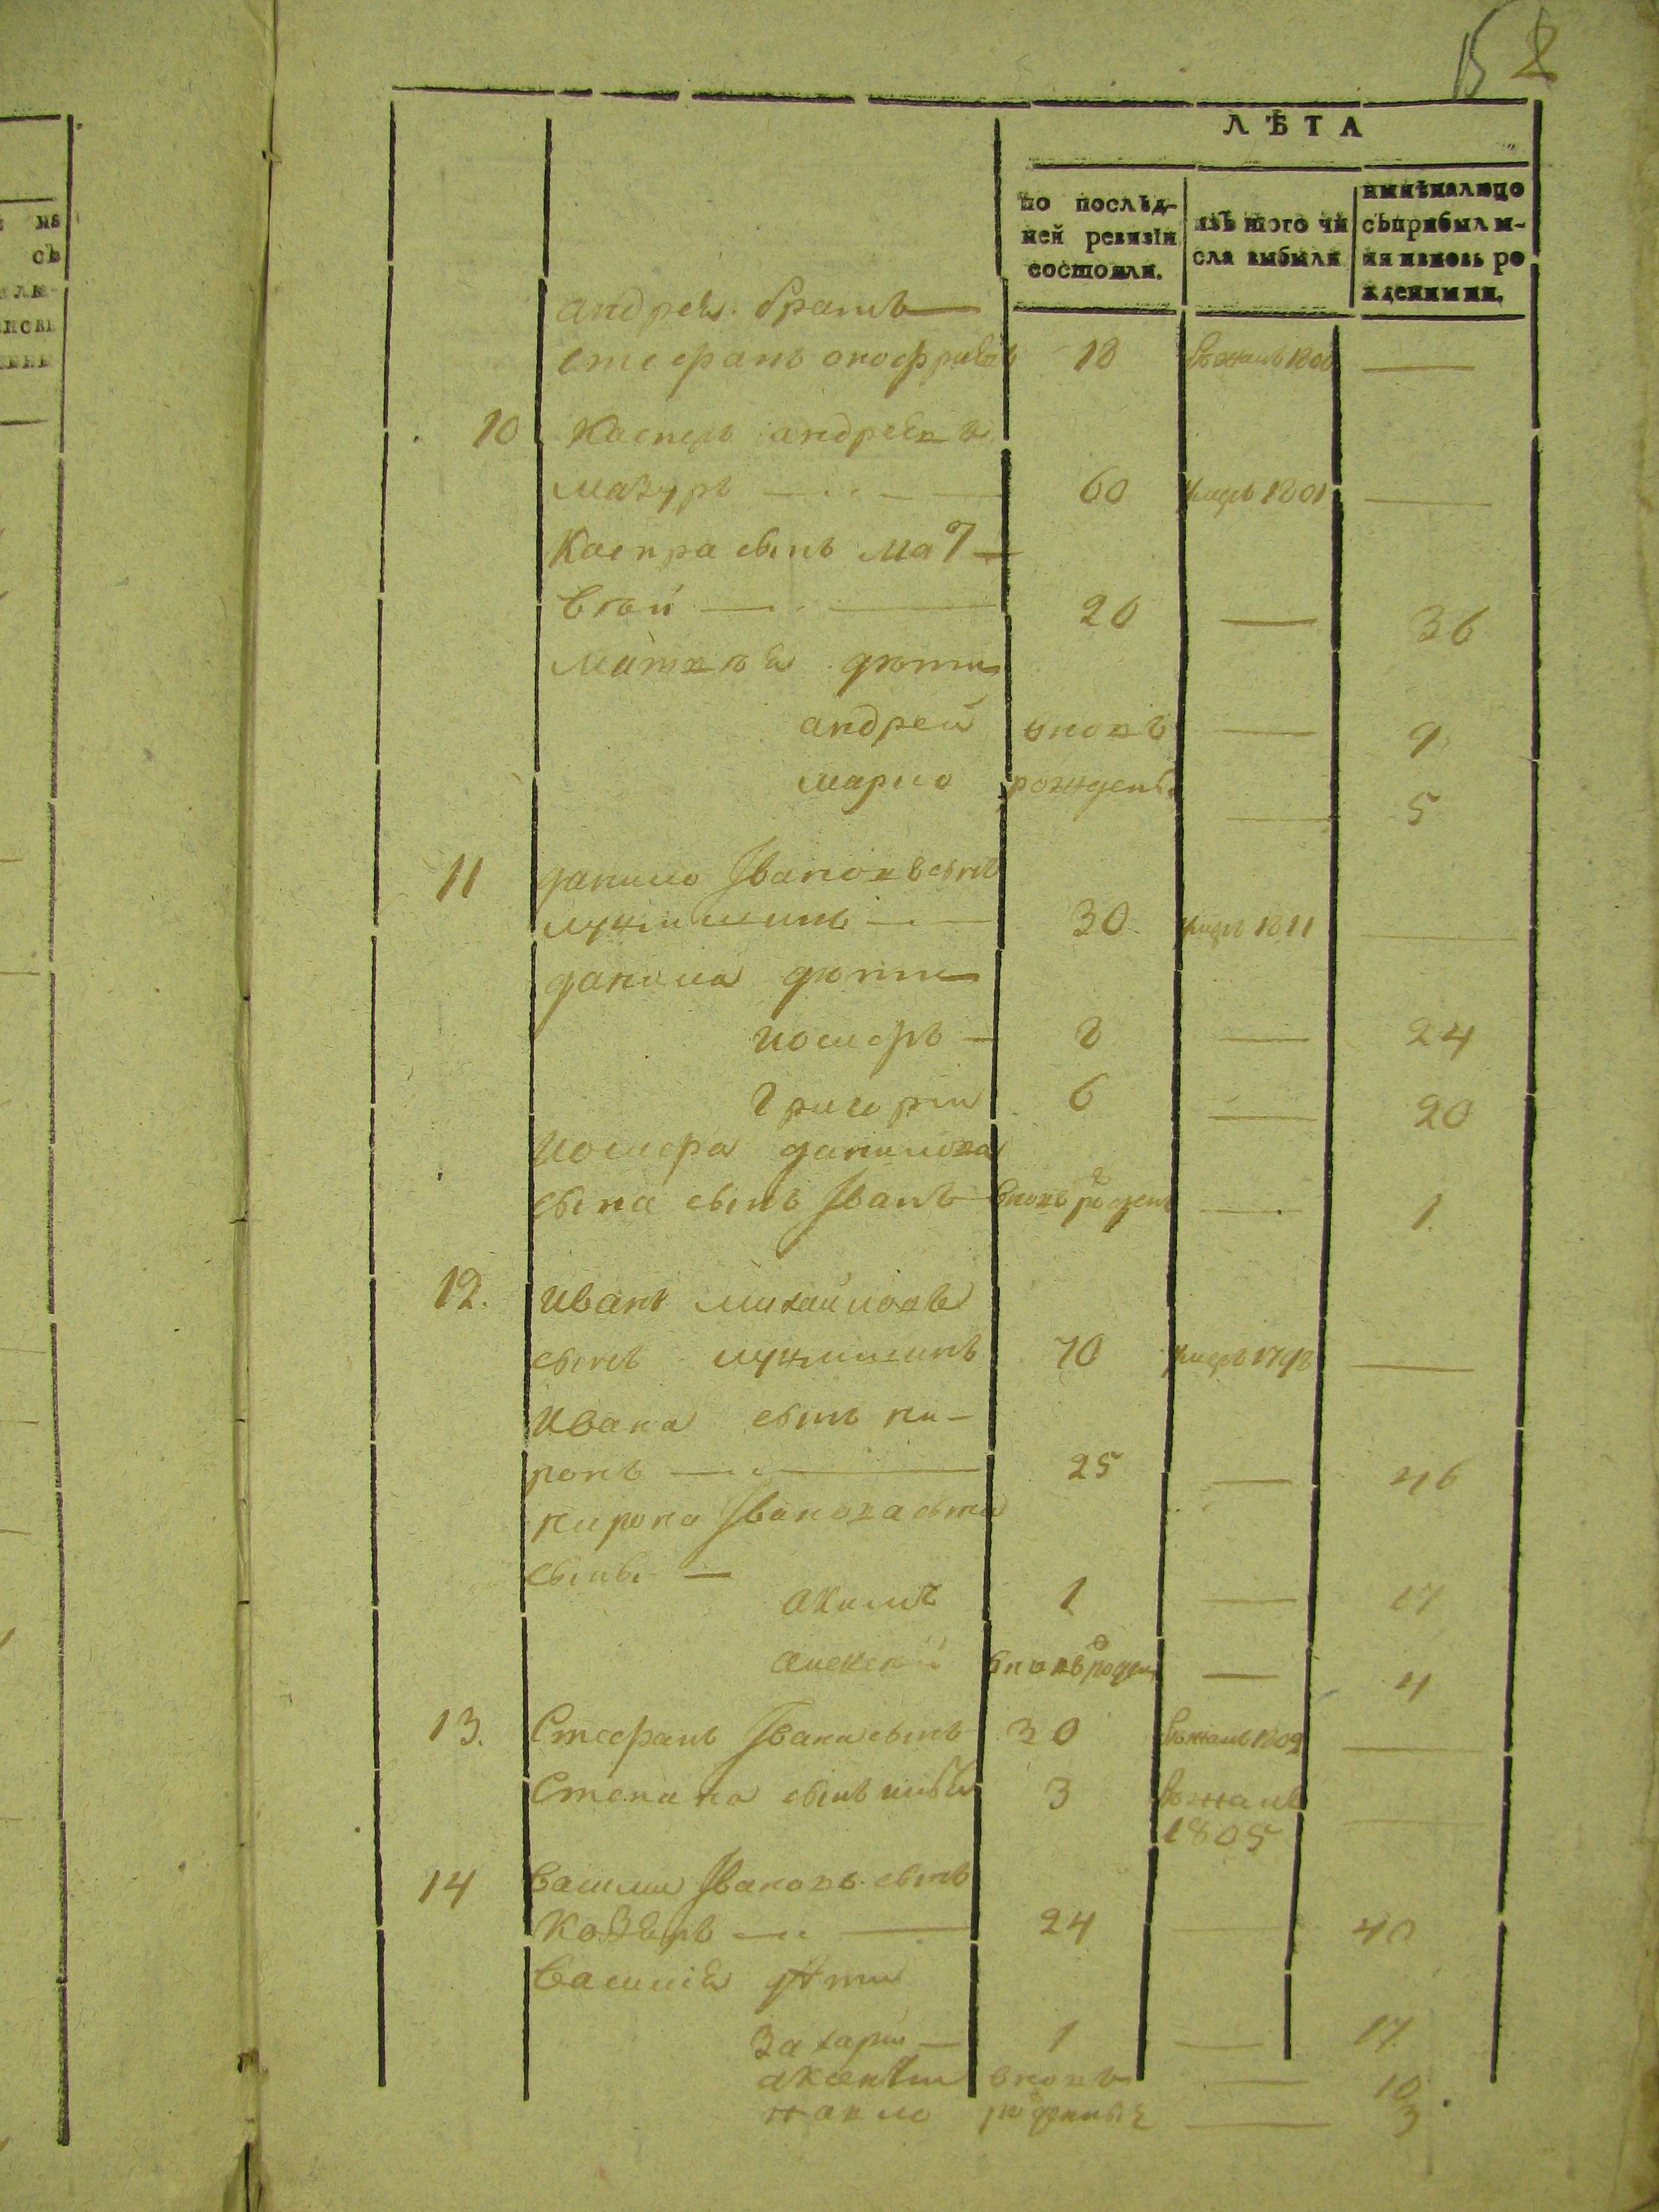 15 2
ЛѢТА
по послѣд-
ней ревизіи
состояли.
изъ того чи
сла выбыли
нынѣ налицо
съ прибылы-
ми и вновь ро
жденными.
андрея братъ —
стефанъ онофриевъ 18 бежалъ 1800 —
10 Касперъ андреевъ
мазуръ — 60 умеръ 1801 —
Каспра сынъ мат-
вей — 20 — 36
матвея дѣти
андрей вновь — 9
марко рожденъ — 5
11 данило Івановъ сынъ
30 умеръ 1811 —
данила дѣти
иосифъ — 8 — 24
григорий 6 — 20
иосифа данилова
сына сынъ Іванъ вновь рожденъ — 1
12. иванъ михайловъ
сынъ 70 умеръ 1798 —
ивана сынъ ми-
ронъ — 25 — 46
мирона Іванова сына
сыны —
акимъ 1 — 17
алексей вновь рожден — 4
13. Стефанъ Івана сынъ 30 бежалъ 1809 —
Степана сынъ 3 бежалъ
1805 —
14 василий Івановъ сынъ
— 24 — 40
василия дѣти
захарий — 1 — 17
аксентий вновь — 10
рожденные — 3